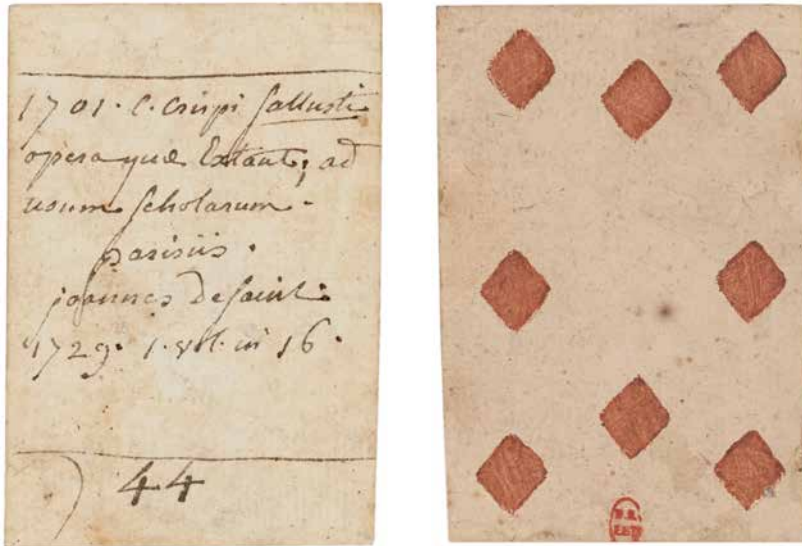 1701. C. Crispi Sallusti
opera quæ Extant; ad
usum scholarum.
parisiis.
joannes Desaint.
1729. 1. vol. in 16.
44